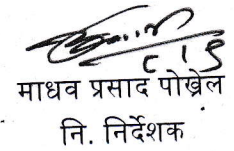 ८।९
माधव प्रसाद पोख्रेल
नि. निर्देशक